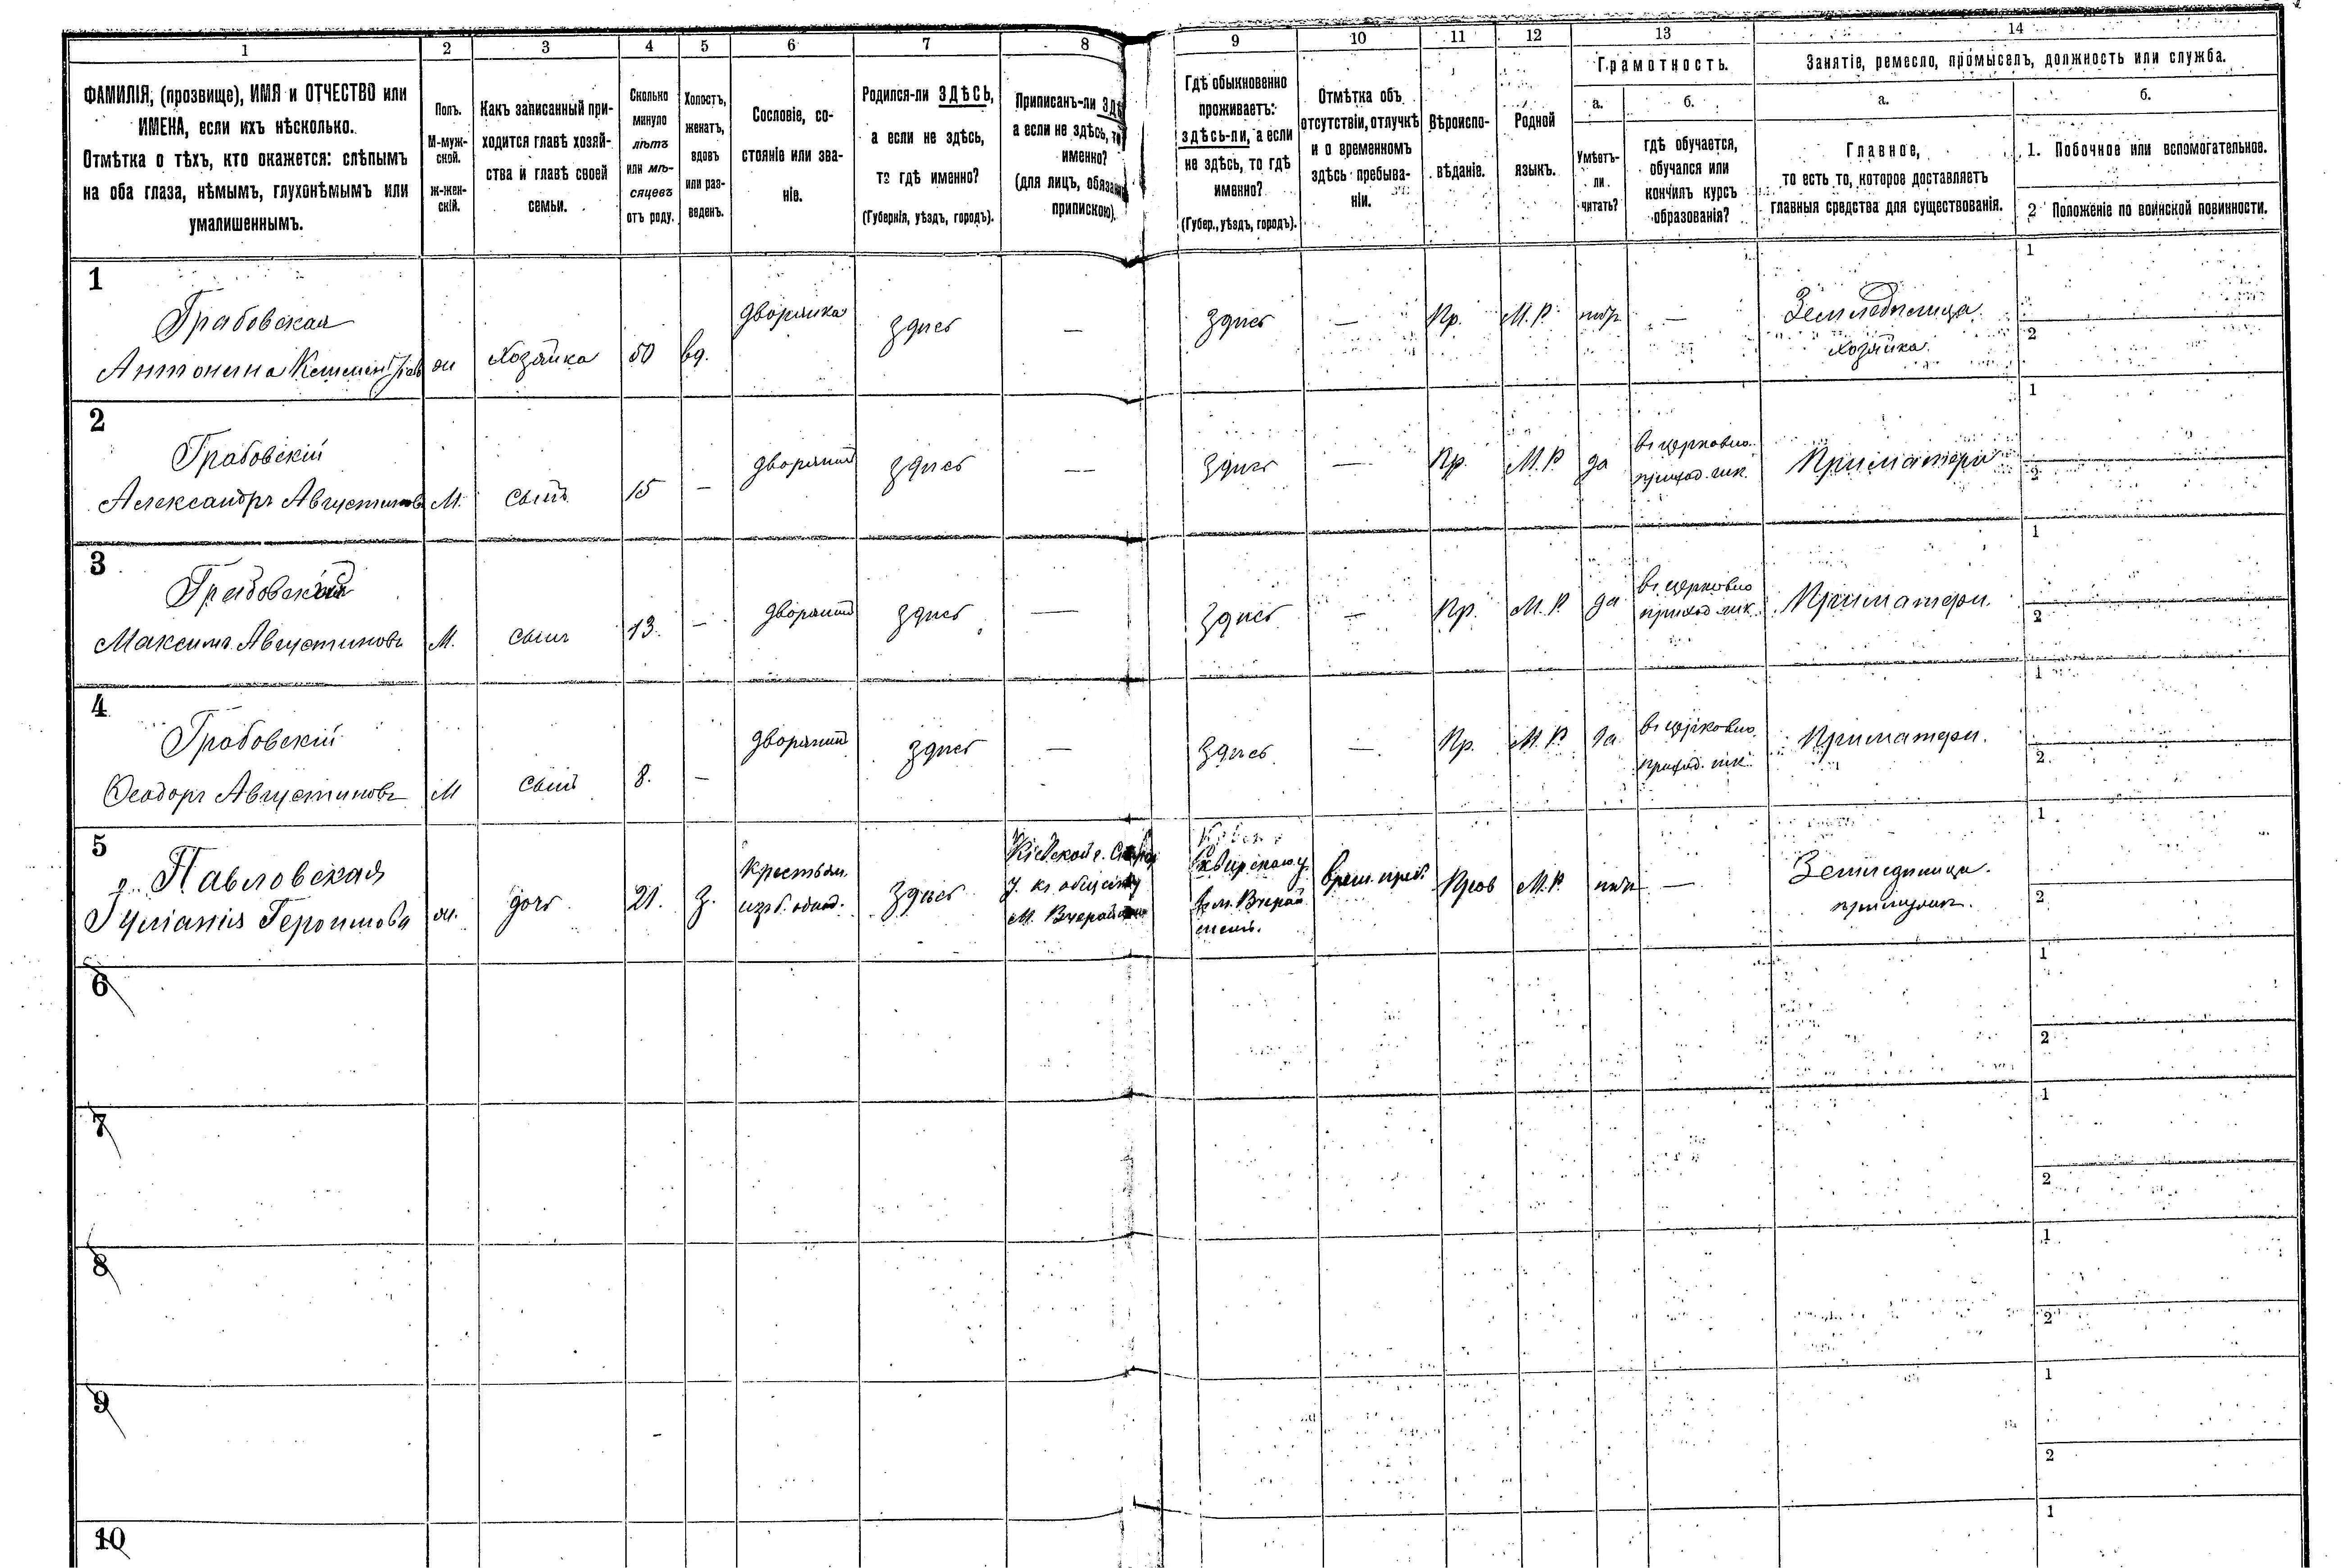 1 2 3 4 5 6 7 8 9 10 11 12 13 14
ФАМИЛІЯ, (прозвище), ИМЯ и ОТЧЕСТВО или
ИМЕНА, если ихъ нѣсколько.
Отмѣтка о тѣхъ, кто окажется: слѣпымъ
на оба глаза, нѣмымъ, глухонѣмымъ или
умалишеннымъ.
Полъ.
М-муж-
ской.
ж-жен-
скій.
Какъ записанный при-
ходится главѣ хозяй-
ства и главѣ своей
семьи.
Сколько
минуло
лѣтъ
или мѣ-
сяцевъ
отъ роду.
Холостъ,
женатъ,
вдовъ
или раз-
веденъ.
Сословіе, со-
стояніе или зва-
ніе.
Родился-ли ЗДѢСЬ,
а если не здѣсь,
то гдѣ именно?
(Губернія, уѣздъ, городъ).
Приписанъ-ли
а если не здѣсь,
именно?
(для лицъ,
припискою)
Гдѣ обыкновенно
проживаетъ:
здѣсь-ли, а если
не здѣсь, то гдѣ
именно?
(Губер., уѣздъ, городъ).
Отмѣтка объ
отсутствіи, отлучкѣ
и о временномъ
здѣсь пребыва-
ніи.
Вѣроиспо-
вѣданіе.
Родной
языкъ.
Грамотность.
а.
Умѣетъ-
ли
читать?
б.
гдѣ обучается,
обучался или
кончилъ курсъ
образованія?
Занятіе, ремесло, промыселъ, должность или служба.
а.
Главное,
то есть то, которое доставляетъ
главныя средства для существованія.
б.
1. Побочное или вспомогательное.
2 Положеніе по воинской повинности.
1
Грабовская
Антонина
Хозяйка
50
вд.
дворянка
здѣсь
—
здѣсь
—
Пр.
М.Р.
нѣтъ
—
Земледѣлица
хозяйка
1
2
2
Грабовскій
Александръ Августиновъ
М.
сынъ
15
—
дворянинъ
здѣсь
—
здѣсь
—
Пр.
М.Р
да
въ церковно
приход. шк.
При матери
1
2
3
Грабовскій
Максимъ Августиновъ
М.
сынъ
13.
—
дворянинъ
здѣсь
—
здѣсь
—
Пр.
М.Р.
да
въ церковно
приход шк.
При матери.
1
2
4
Грабовскій
Ѳеодоръ Августиновъ
М
сынъ
8.
—
дворянинъ
здѣсь
—
здѣсь
—
Пр.
М.Р.
да
въ церковно
приход. шк.
При матери.
1
2
5
Павловская
Іуліанія
дочь
21.
з.
крестьян.
здѣсь
Кіевской г.
у. къ обществу
М.
Сквирскаго у.
в м.
врем. преб.
Прав
М.Р.
нѣтъ
—
Земледѣлица.
1
2
6
1
2
7
1
2
8
1
2
9
1
2
10
1